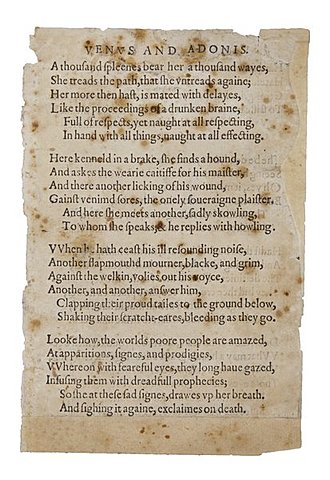 VENVS AND ADONIS.
A thousand spleenes bear her a thousand wayes,
She treads the path, that she vntreads againe;
Her more then hast, is mated with delayes,
Like the proceedings of a drunken braine,
Full of respects, yet naught at all respecting,
In hand with all things, naught at all effecting.
Here kenneld in a brake, she finds a hound,
And askes the wearie caitiffe for his maister,
And there another licking of his wound,
Gainst venimd sores, the onely soueraigne plaister.
And here she meets another, sadly skowling,
To whom she speaks, & he replies with howling.
VVhen he hath ceast his ill resounding noise,
Another flapmouthd mourner, blacke, and grim,
Against the welkin, volies out his voyce,
Another, and another, answer him,
Clapping their proud tailes to the ground below,
Shaking their scratcht-eares, bleeding as they go.
Looke how, the worlds poore people are amazed,
At apparitions, signes, and prodigies,
VVhereon with fearefull eyes, they long haue gazed,
Infusing them with dreadfull prophecies;
So she at these sad signes, drawes vp her breath,
And sighing it againe, exclaimes on death.